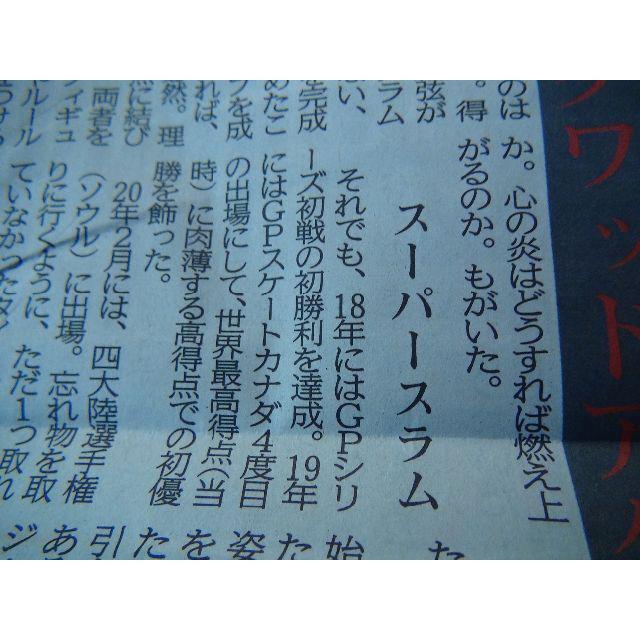 ワットアイ
のは
。得
か。心の炎はどうすれば燃え上
がるのか。もがいた。
スーパースラム
それでも、18年にはGPシリ
ーズ初戦の初勝利を達成。19年
にはGPスケートカナダ4度目
の出場にして、世界最高得点(当
時)に肉薄する高得点での初優
勝を飾った。
20年2月には、四大陸選手権
(ソウル)に出場。忘れ物を取
りに行くように、ただ1つ取れ
ていなかったタイ
弦が
ラム
い、
を完成
めたこ
フを成
れば、
然。理
点に結び
両者を
フィギュ
ルール
た
始
た
姿
を
た
引
あ
ジ